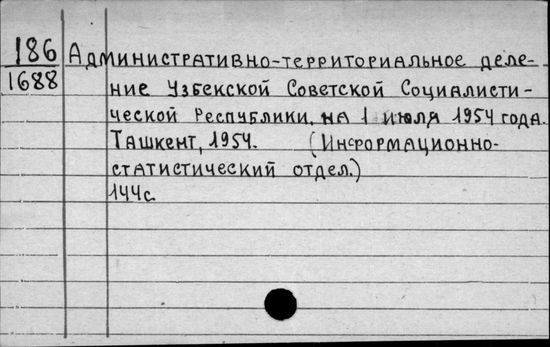 186 Административно-территориальное деле-
1688 ние Узбекской Советской Социалисти-
ческой Республики, на 1 июля 1954 года.
Ташкент, 1954. (Информационно-
статистический отдел.)
144с.